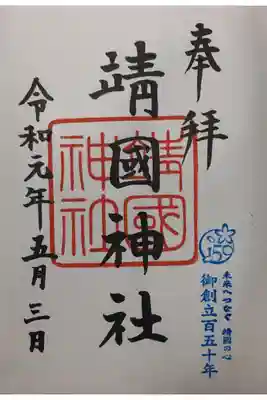 奉拝
靖國神社
靖國
神社
令和元年五月三日
150
未来へつなぐ 靖国の心
御創立百五十年